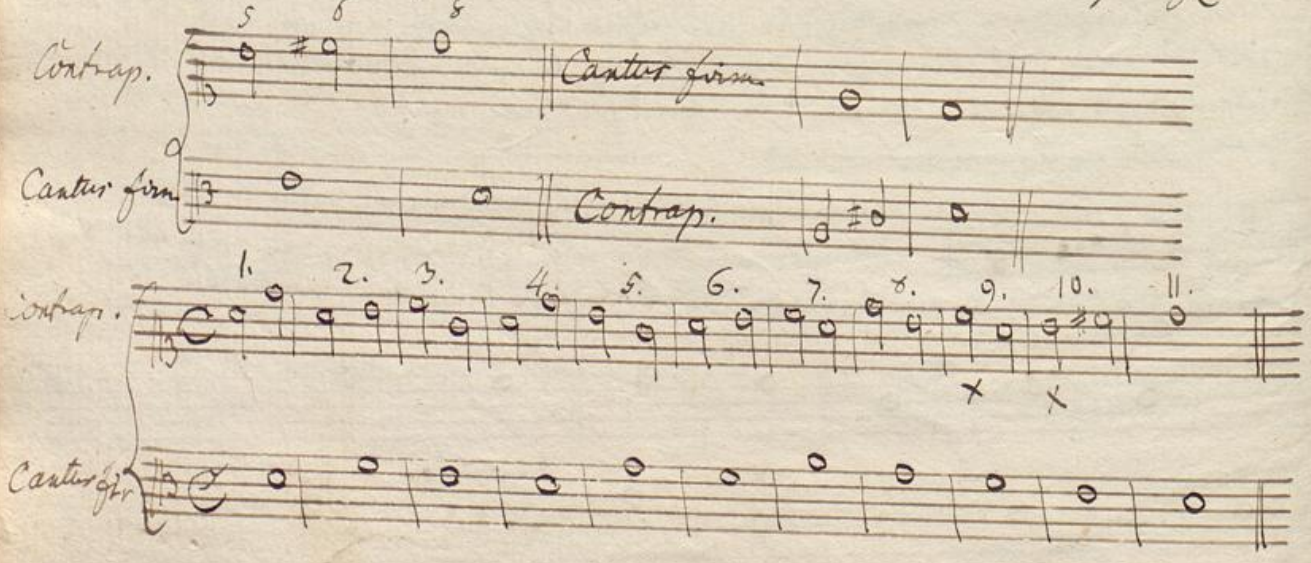 5 6 8
Contrap.
Cantus firm.
Cantus firm
Contrap.
1. 2. 3. 4. 5. 6. 7. 8. 9. 10. 11.
Contrap.
x x
Cantus fir